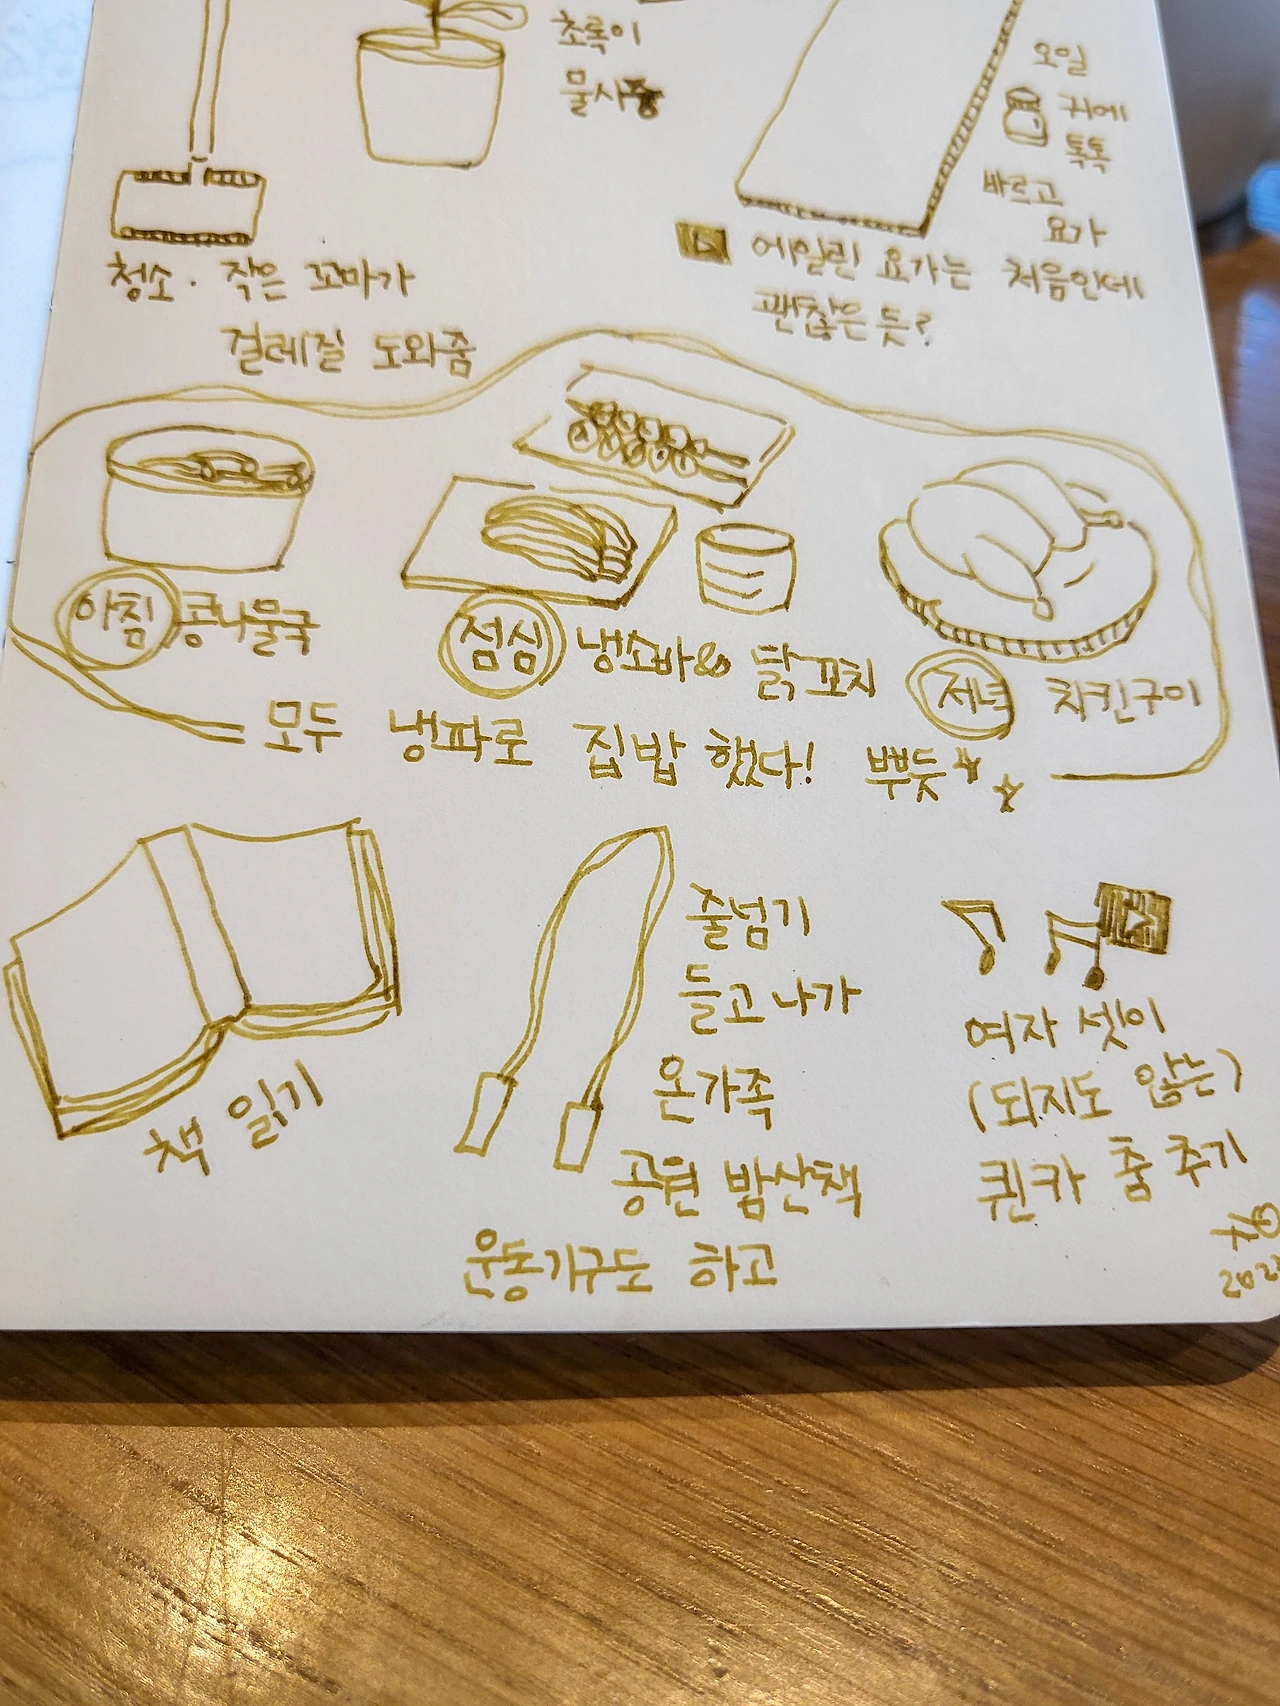 초록이
물샤
오일
귀에
톡톡
바르고
요가
청소. 작은 꼬마가
걸레질 도와줌
에일린 요가는 처음인데
괜찮은 듯?
아침 콩나물국
점심 냉소바& 닭꼬치
저녁 치킨구이
모두 냉파로 집밥 했다! 뿌듯
책 읽기
줄넘기
들고 나가
온가족
공원 밤산책
운동기구도 하고
여자 셋이
(되지도 않는)
퀸카 춤 추기